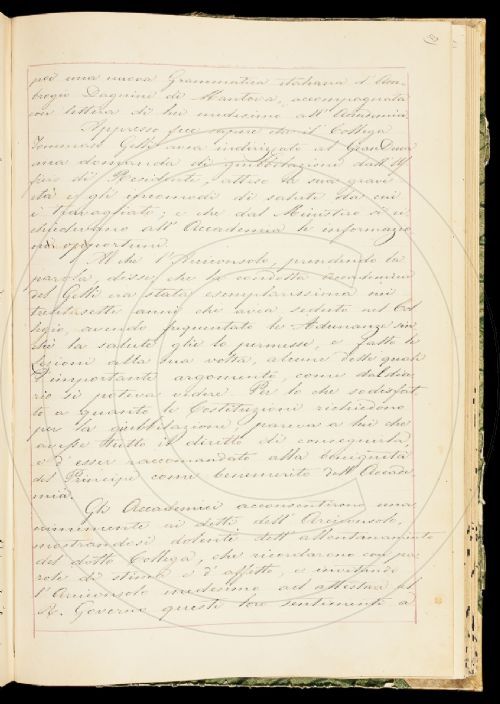 per una nuova Grammatica italiana d'Am-
brogio Dagnini di Mantova, accompagnata
con lettera di lui medesimo all'Accademia.
Appresso fece sapere che il Collega
Tommaso Gelli avea indirizzato al Gran Duca
una domanda di giubbilazione dall'Uf
fizio di Residente, atteso la sua grave
età e gli incomodi di salute da cui
è travagliato; e che dal Ministro si ri-
chiedevano all'Accademia le informazio
ni opportune.
Al che l'Arciconsolo, prendendo la
parola disse che la condotta accademica
del Gelli era stata esemplarissima nei
trentasette anni che avea seduto nel Col
legio, avendo frequentato le Adunanze fin
chè la salute glie lo permesse, e fatto le
Lezioni alla sua volta, alcune delle quali
d'importante argomento, come dal Dia
rio si poteva vedere. Per lo che sodisfat
to a quanto le Costituzioni richiedono
per la giubbilazione, pareva a lui che
avesse tutto il diritto di conseguirla
e d'esser raccomandato alla benignità
del Principe come benemerito dell'Accade
mia.
Gli Accademici acconsentirono una
nimemente ai detti dell'Arciconsolo,
mostrandosi dolenti dell'allontanamento
del dotto Collega, che ricordarono con pa
role di stima e d'affetto, e invitando
l'Arciconsolo medesimo ad attestare al
R. Governo questi loro sentimenti a